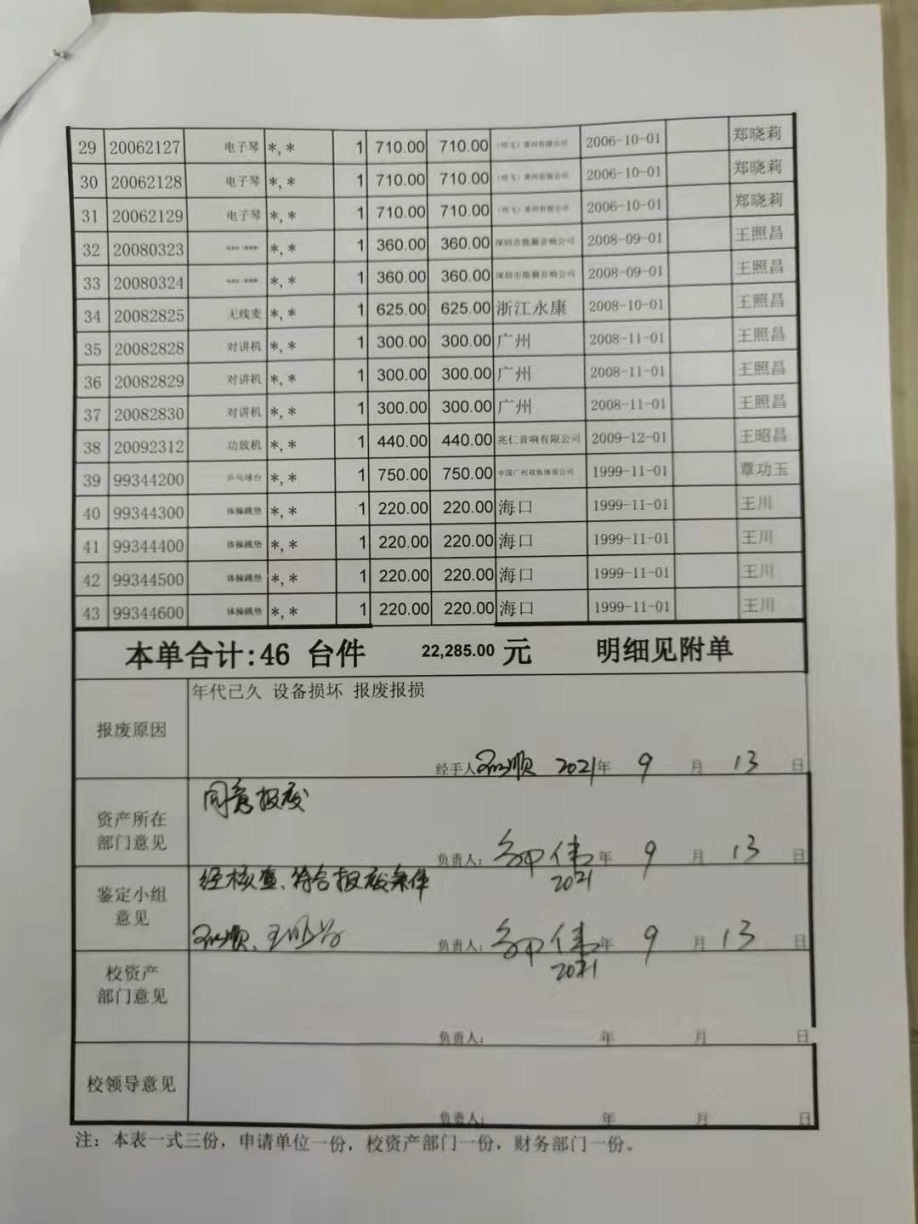 29 20062127 电子琴 *,* 1 710.00 710.00 2006-10-01 郑晓莉
30 20062128 电子琴 *,* 1 710.00 710.00 2006-10-01 郑晓莉
31 20062129 电子琴 *,* 1 710.00 710.00 2006-10-01 郑晓莉
32 20080323 *,* 1 360.00 360.00 2008-09-01 王照昌
33 20080324 *,* 1 360.00 360.00 2008-09-01 王照昌
34 20082825 无线麦 *,* 1 625.00 625.00 浙江永康 2008-10-01 王照昌
35 20082828 对讲机 *,* 1 300.00 300.00 广州 2008-11-01 王照昌
36 20082829 对讲机 *,* 1 300.00 300.00 广州 2008-11-01 王照昌
37 20082830 对讲机 *,* 1 300.00 300.00 广州 2008-11-01 王照昌
38 20092312 功放机 *,* 1 440.00 440.00 兆仁音响有限公司 2009-12-01 王昭昌
39 99344200 乒乓球台 *,* 1 750.00 750.00 1999-11-01 覃功玉
40 99344300 体操跳垫 *,* 1 220.00 220.00 海口 1999-11-01 王川
41 99344400 体操跳垫 *,* 1 220.00 220.00 海口 1999-11-01 王川
42 99344500 体操跳垫 *,* 1 220.00 220.00 海口 1999-11-01 王川
43 99344600 体操跳垫 *,* 1 220.00 220.00 海口 1999-11-01 王川
本单合计:46 台件 22,285.00 元 明细见附单
年代已久 设备损坏 报废报损
报废原因
经手人 2021年 9 月 13 日
同意报废
资产所在
部门意见
负责人: 年 9 月 13 日
2021
经核查、符合报废条件
鉴定小组
意见
负责人: 年 9 月 13 日
2021
校资产
部门意见
负责人: 年 月 日
校领导意见
负责人: 年 月 日
注: 本表一式三份, 申请单位一份, 校资产部门一份, 财务部门一份。